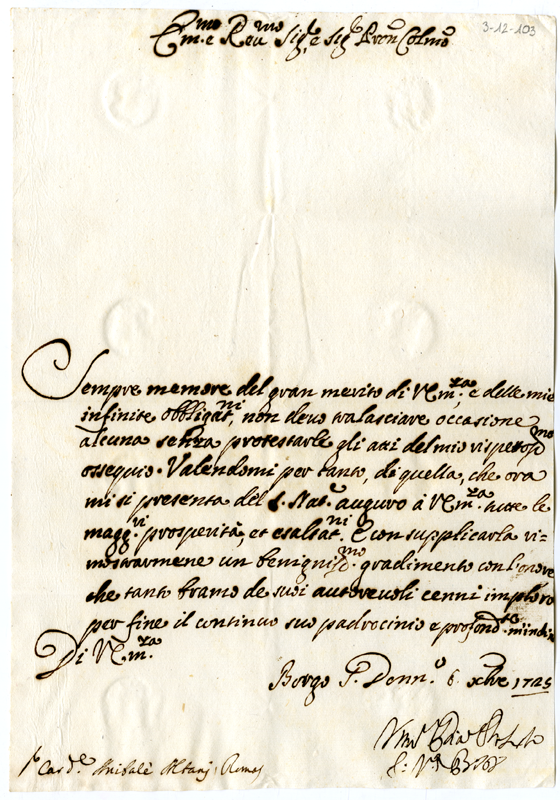 3-12-103
Em.mo e Reu.mo Sig.r e Sig.r Pron Colmo
Sempre memore del gran merito di V. Em.za, e delle mie
infinite obbligat.ni, non deuo tralasciare occasione
alcuna senza protestarle gli atti del mio rispettos.mo
ossequio. Valendomi per tanto, di quella, che ora
mi si presenta del S. Nat.e auguro à V. Em.za tutte le
magg.ri prosperità, et esaltat.ni. E con supplicarla ri=
mostrarmene un benignis.mo gradimento con l'onore
che tanto bramo de suoi autoreuoli cenni imploro
per fine il continuo suo padrocinio e profond.te m'inchino
Di V. Em.za
Borgo S. Donn.o 6 xbre 1725
S.r Card.e Anibale Albani, Roma